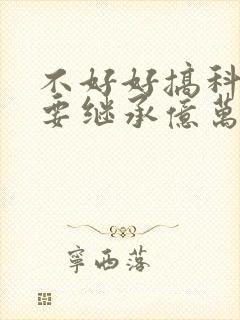 不好好搞科
要继承億萬
寧西落